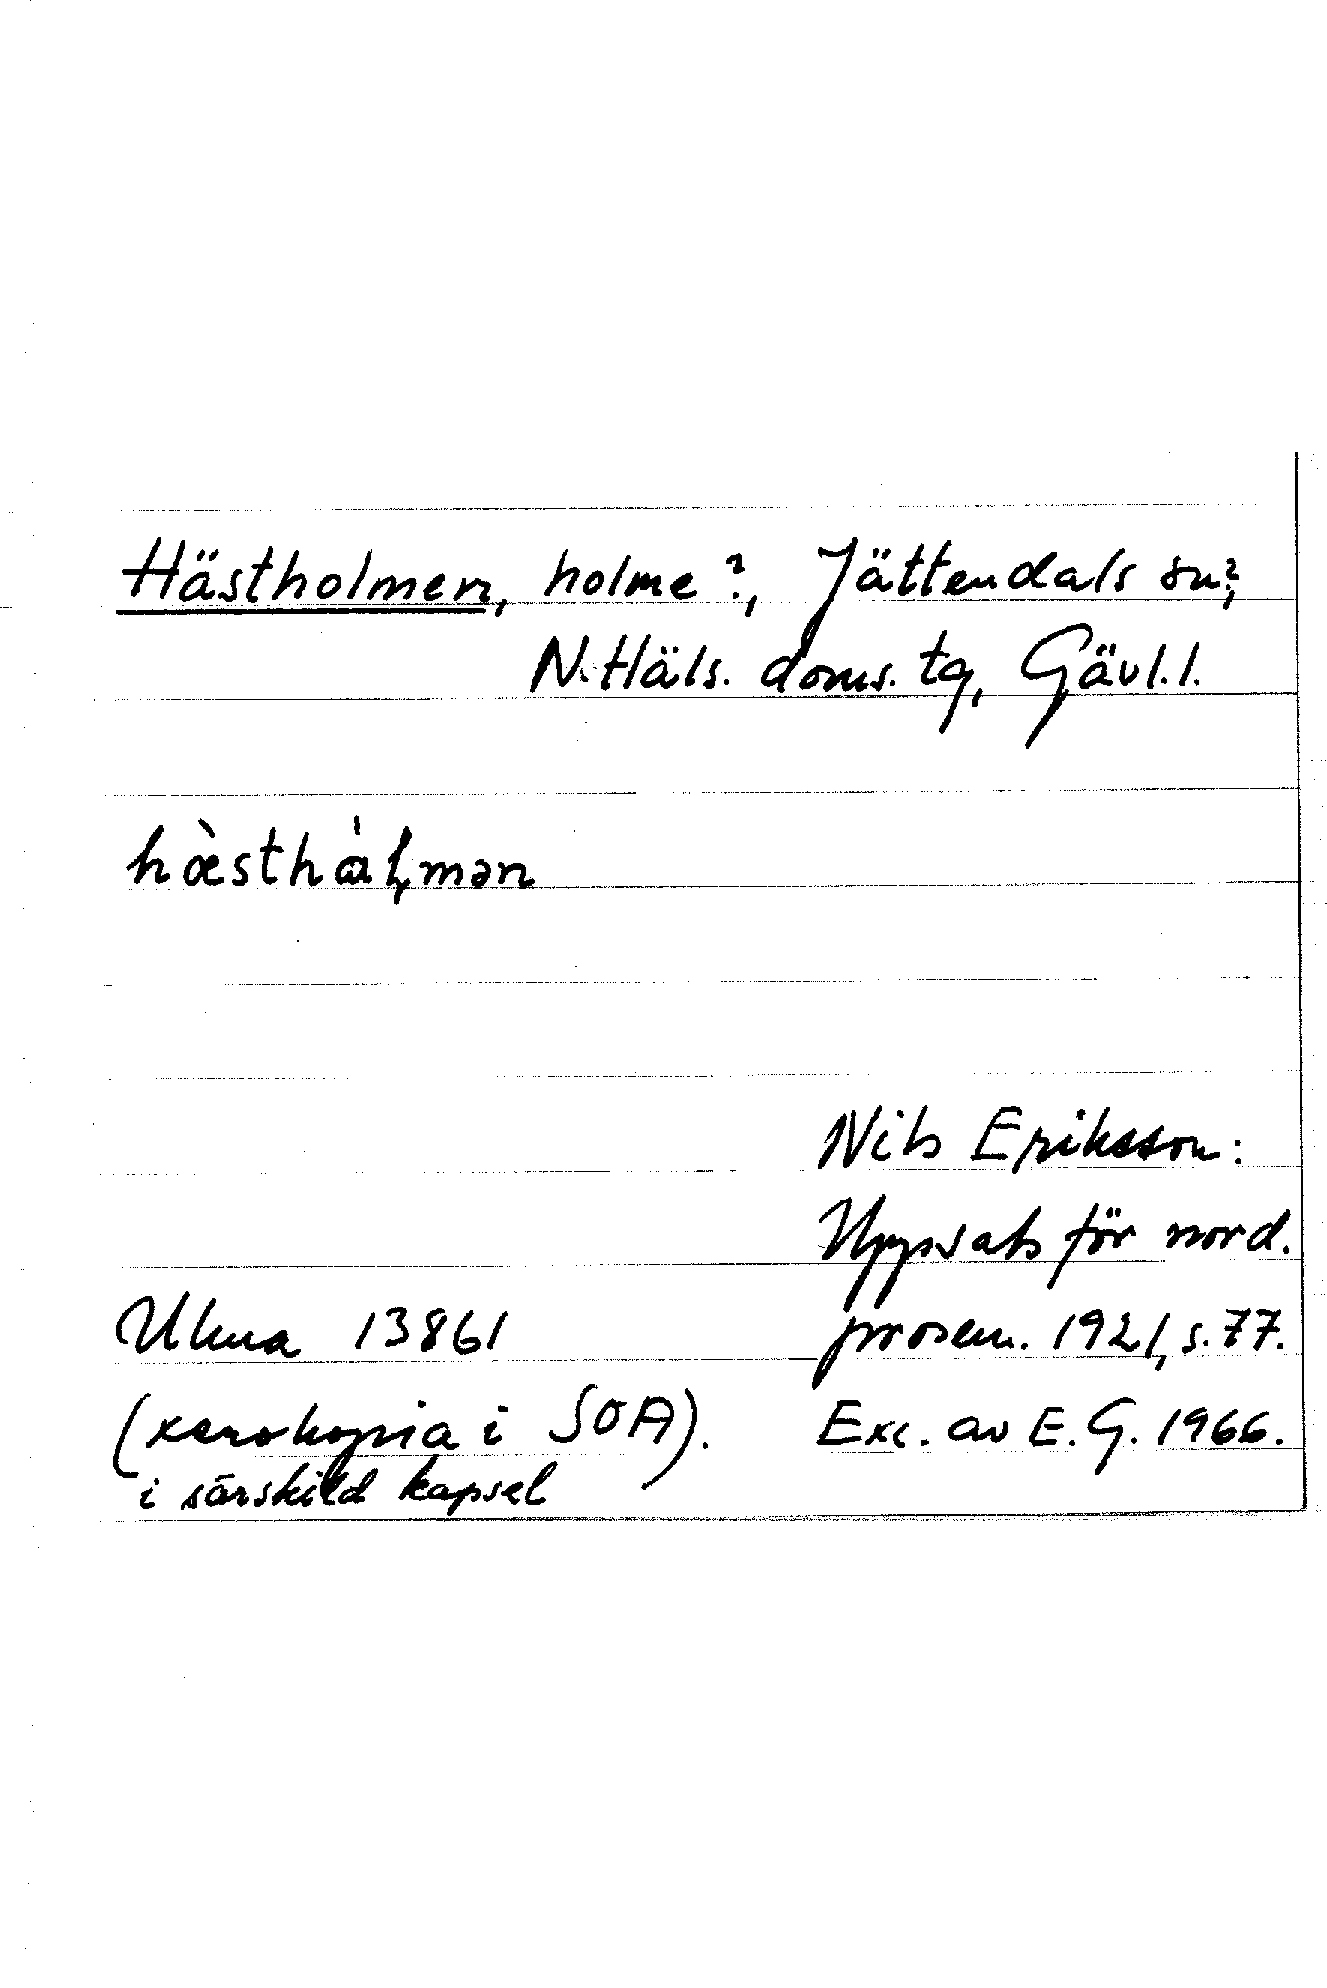 Hästholmen, holme?, Jättendals sn?,
N. Häls. doms. tg, Gävl. l.
hæ̀sthὰḷmən
Nils Eriksson:
Uppsats för nord.
Ulma 13861 prosem. 1921, s. 77.
(xerokopia i SOA). Exc. av E. G. 1966.
i särskild kapsel